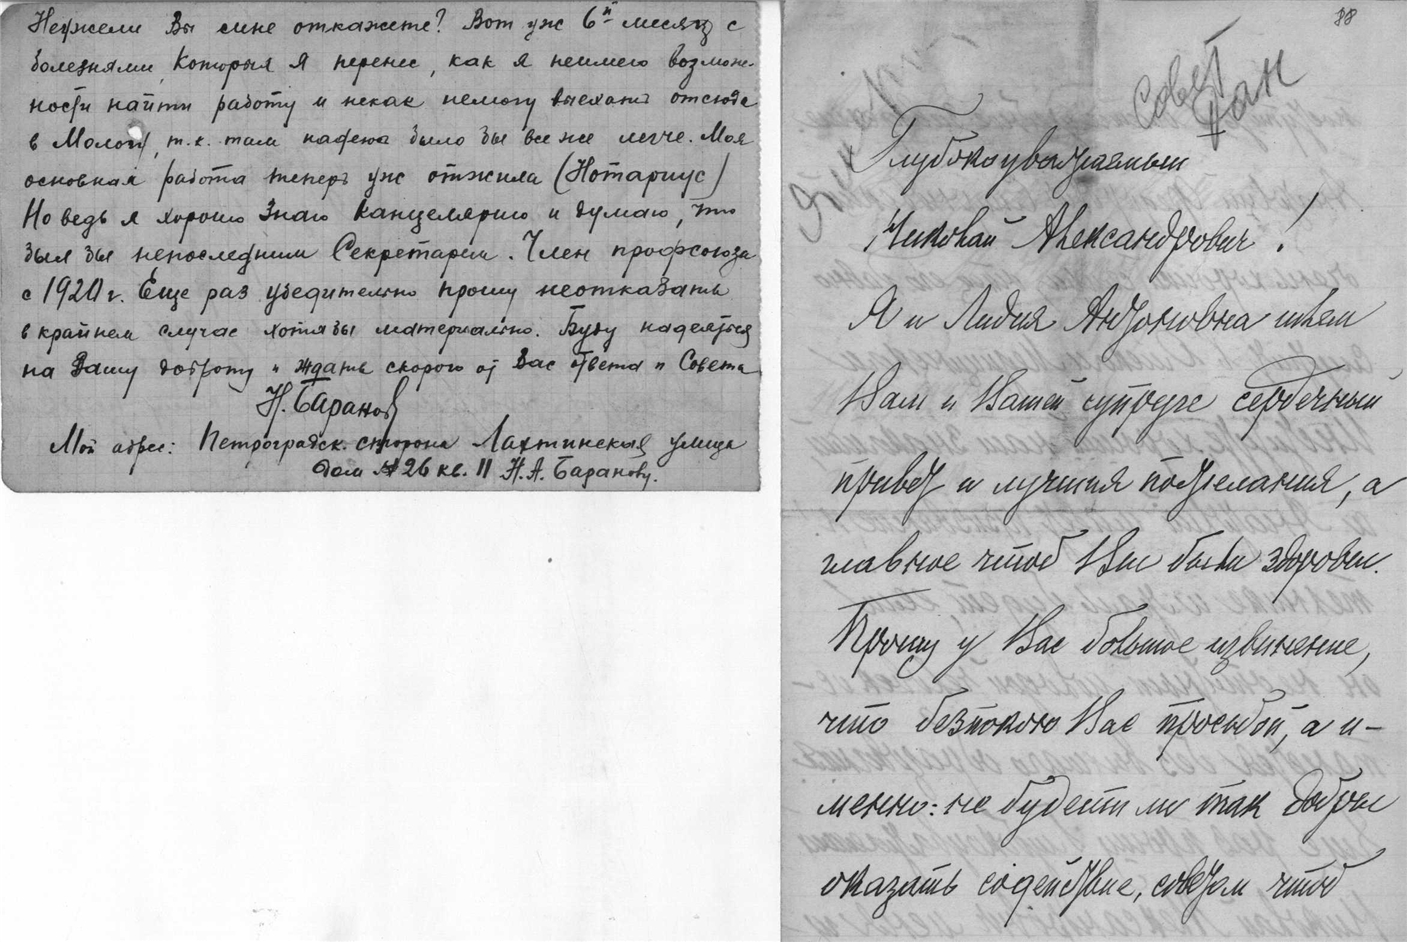 Неужели Вы мне откажете? Вот уж 6й месяц с
болезнями, которыя я перенес, как я неимею возмож-
ности найти работу и никак немогу выехать отсюда
в Мологу, т.к. там надеюсь было бы все же легче. Моя
основная работа теперь уж отжила (Нотариус)
Но ведь я хорошо знаю канцелярию и думаю, что
был бы непоследним Секретарем. Член профсоюза
с 1920 г. Еще раз убедительно прошу неотказать
в крайнем случае хотябы материально. Буду надеяться
на Вашу доброту и ждать скорого от Вас ответа и Совета
Н. Баранов
Мой адрес: Петроградск. сторона Лахтинская улица
дом № 26 кв. 11 Н. А. Баранову.
88
Совет
дан
Глубокоуважаемый
Николай Александрович!
Я и Лидия Антоновна шлем
Вам и Вашей супруге сердечный
привет и лучшия пожелания, а
главное чтоб Вы были здоровы.
Прошу у Вас большое извинение,
что безпокою Вас просьбой, а и-
менно: не будете ли так добры
оказать содействие, советом чтоб